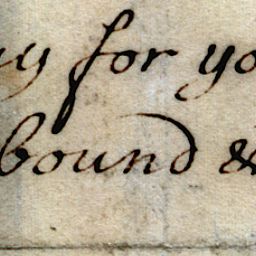 ay for yo
bound &